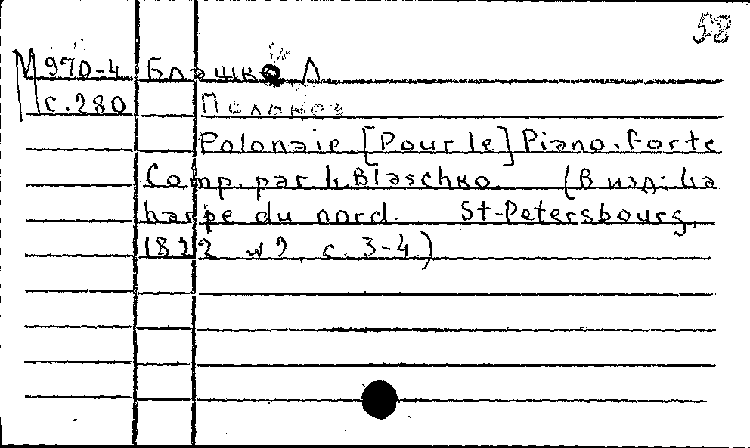 58
М 970-4 Блашко Л
с. 280 Полонез
Polonaie [Pour le] Piano-forte
Comp. par L. Blaschko (В изд: La
harpe du nord. St-Petersbourg,
1822 № 2 с. 3-4)